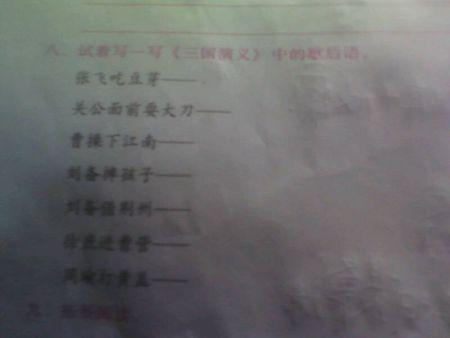 八、试着写一写《三国演义》中的歇后语。
张飞吃豆芽——
关公面前耍大刀——
曹操下江南——
刘备摔孩子——
刘备借荆州——
徐庶进曹营——
周瑜打黄盖——
九、